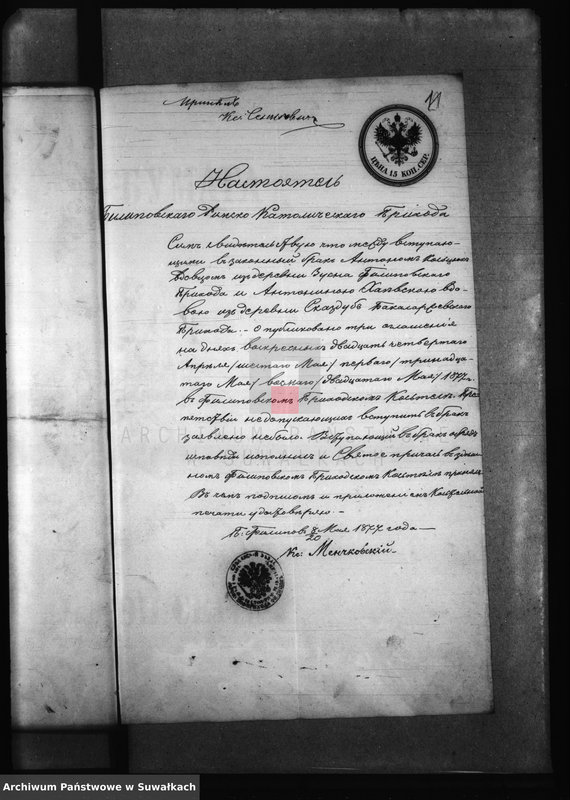 Кс: Семнович
11
ЦѢНА 15 КОП. СЕР.
Настоятель
Филиповскаго Римско Католическаго Прихода
Симъ свидетельствую что между вступаю-
щими въ законный бракъ Антономъ
Вдовцомъ изъ деревни Зусна Филиповскаго
Прихода и Антониною Хаевскою Вдо-
вою изъ деревни Сказдубъ Бакаларжевскаго
Прихода. - Опубликовано три оглашенія
на дняхъ воскресныхъ двадцать четвертаго
Апрѣля /шестаго Мая/ перваго /тринадца-
таго Мая/ восьмаго /двадцатаго Мая/ 1877 г.
въ Филиповскомъ Приходскомъ Костелѣ. Пре-
пятствій недопускающихъ вступить въ бракъ
заявлено небыло. Вступающій въ бракъ обрядъ
исповѣди исполнилъ и Святое причастіе въ здѣш-
номъ Филиповскомъ Приходскомъ Костелѣ принялъ.
Въ семъ подписомъ и приложеніемъ Костельной
печати удостовѣряю. -
П. Филиповъ 8/20 Мая 1877 года -
Кс: Мечковскій -
ARCHIWUM PAŃSTWOWE
W SUWAŁKACH
Archiwum Państwowe w Suwałkach